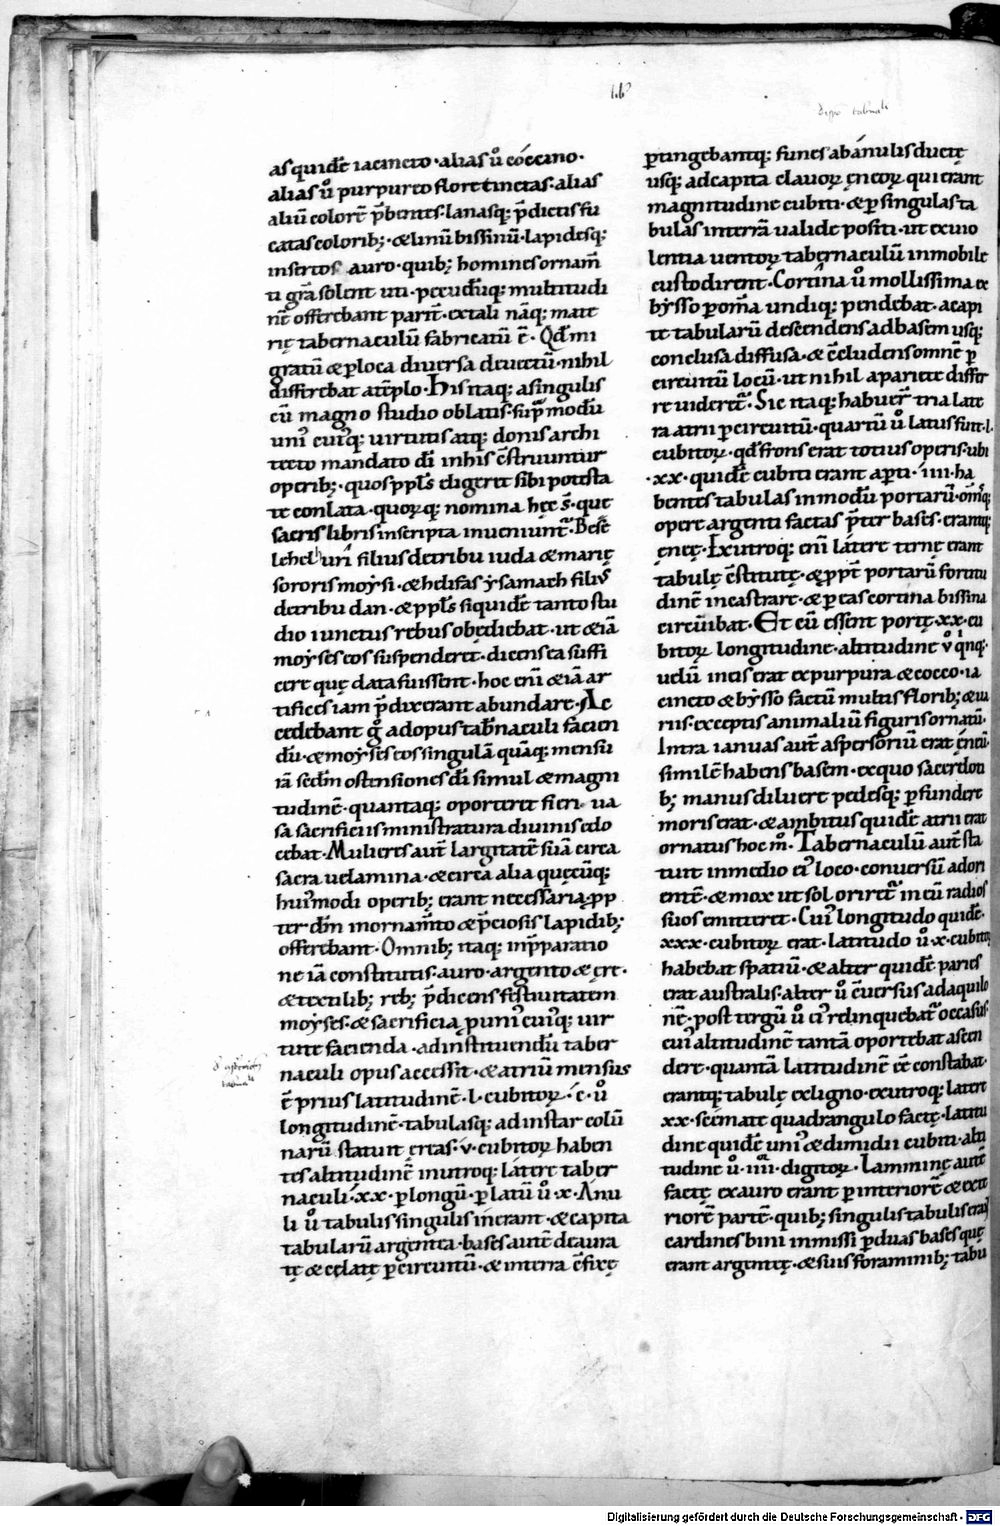 as quidē iacincto · alias ů coccino ·
alias ů purpureo flore tinctas · alias
aliū colorē p̄bentes · lanasq; p̄dictis fu
catas colorib; · & linū bissinū · lapidesq;
insertos auro · quib; homines ornam̄
ti gr̄a solent uti · pecudūq; multitudi
nē offerebant parit̄ · ex tali nāq; mate
rię tabernaculū fabricatū ē · Qđ mi
gratū & p loca diuersa deuectū · nihil
differebat a tēplo · His itaq; a singulis
cū magno studio oblatis · sup̄ modū
uni' cui'q; uirtutis atq; donis archi
tecto mandato dī in his c̄struuntur
operib; · quos ppl's eligeret sibi potesta
te conlata · quorꝝ q; nomina hęc s̄ · que
sacris libris inscripta inueniunt̄ · Besē
lehel uri filius de tribu iuda & marię
sororis moysi · & helifas ysamach filiꝰ
de tribu dan · & ppl's siquidē tanto stu
dio iunctus rebus obędiebat · ut & iā
moyses eos suspenderet · dicens ea suffi
cere quę data fuissent · hoc eni & iā ar
tifices iam p̄dixerant abundare · Ac
cedebant g̊ ad opus tab̄naculi facien
dū · & moyses eos singulā quāq; mensu
rā sedm ostensiones dī simul & magni
tudinē · quantaq; oporteret fieri ua
sa sacrificiis ministratura diuinis edo
cebat · Mulieres aut̄ largitatē suā circa
sacra uelamina · & circa alia quęcūq;
hui'modi operib; erant necessaria · pp
ter dn̄m in ornam̄to & p̄ciosis lapidib;
offerebant · Omnib; itaq; in p̄paratio
ne iā constitutis · auro · argento & ęre ·
& textilib; reb; p̄dicens festiuitatem
moyses · & sacrificia p uni'cui'q; uir
tute facienda · ad instituendū taber
naculi opus accessit · & atriū mensus
ē prius latitudinē · l · cubitoꝝ · c · ů
longitudinē · tabulasq; ad instar colū
narū statuit ęreas · v · cubitoꝝ haben
tes altitudinē in utroq; latere taber
naculi · xx · p longū · p latū ů · x · Anu
li ů tabulis singulis inerant · & capita
tabularū argentea · bases autē deaura
tę & cęlatę p circuitū · & in terra c̄fixę
ptingebantq; funes ab anulis ductę
usq; ad capita clauoꝝ ęneoꝝ qui erant
magnitudine cubiti · & p singulas ta
bulas in terrā ualide positi · ut ex uio
lentia uentoꝝ tabernaculū inmobile
custodirent · Cortina ů mollissima ex
bysso p om̄a undiq; pendebat · a capi
te tabularū descendens ad basem usq;
conclusa diffusa · & c̄cludens omnē p
circuitū locū · ut nihil a pariete differ
re uideret̄ · Sic itaq; habuer̄ tria late
ra atrii p circuitū · quartū ů latus fuit · l ·
cubitoꝝ · qđ frons erat totius operis · ubi
· xx · quidē cubiti erant aperti · iiii · ha
bentes tabulas in modū portarū · om̄iq;
opere argenti factas p̄ter bases · erantq;
ęneę · Ex utroq; eni latere ternę erant
tabulę c̄stitutę · & ppt̄ portarū fortitu
dinē incastratę · & p eas cortina bissina
circūibat · Et cū essent portę · xx · cu
bitoꝝ longitudine · altitudine v̊ qnq; ·
uelū ineis erat ex purpura & cocco · ia
cincto & bysso factū multis florib; & ua
riis · exceptis animaliū figuris ornatū ·
Intra ianuas aut̄ aspersoriū erat ęneū ·
similē habens basem · ex quo sacerdoti
b; manus diluere pedesq; pfundere
moris erat · & ambitus quidē atrii erat
ornatus hoc m̊ · Tabernaculū aut̄ sta
tuit in medio ei' loco · conuersū ad ori
entē · & mox ut sol oriret̄ in eū radios
suos emitteret · Cui' longitudo quidē ·
xxx · cubitoꝝ erat · latitudo ů · x · cubitoꝝ
habebat spatiū · & alter quidē paries
erat australis · alter ů c̄uersus ad aquilo
nē · post tergū ů ei' relinquebat̄ occasus ·
cui' altitudinē tantā oportebat ascen
dere · quantā latitudinē ēē constabat ·
erantq; tabulę ex ligno · ex utroq; latere
xx · scemate quadrangulo factę · latitu
dine quidē uni' & dimidii cubiti · alti
tudine ů · iiii · digitoꝝ · Lamminę autē
factę ex auro erant p interiorē & exte
riorē partē · quib; singulis tabulis erant
cardines bini inmissi p duas bases quę
erant argenteę · & suis foraminib; tabu
Digitalisierung gefördert durch die Deutsche Forschungsgemeinschaft - DFG